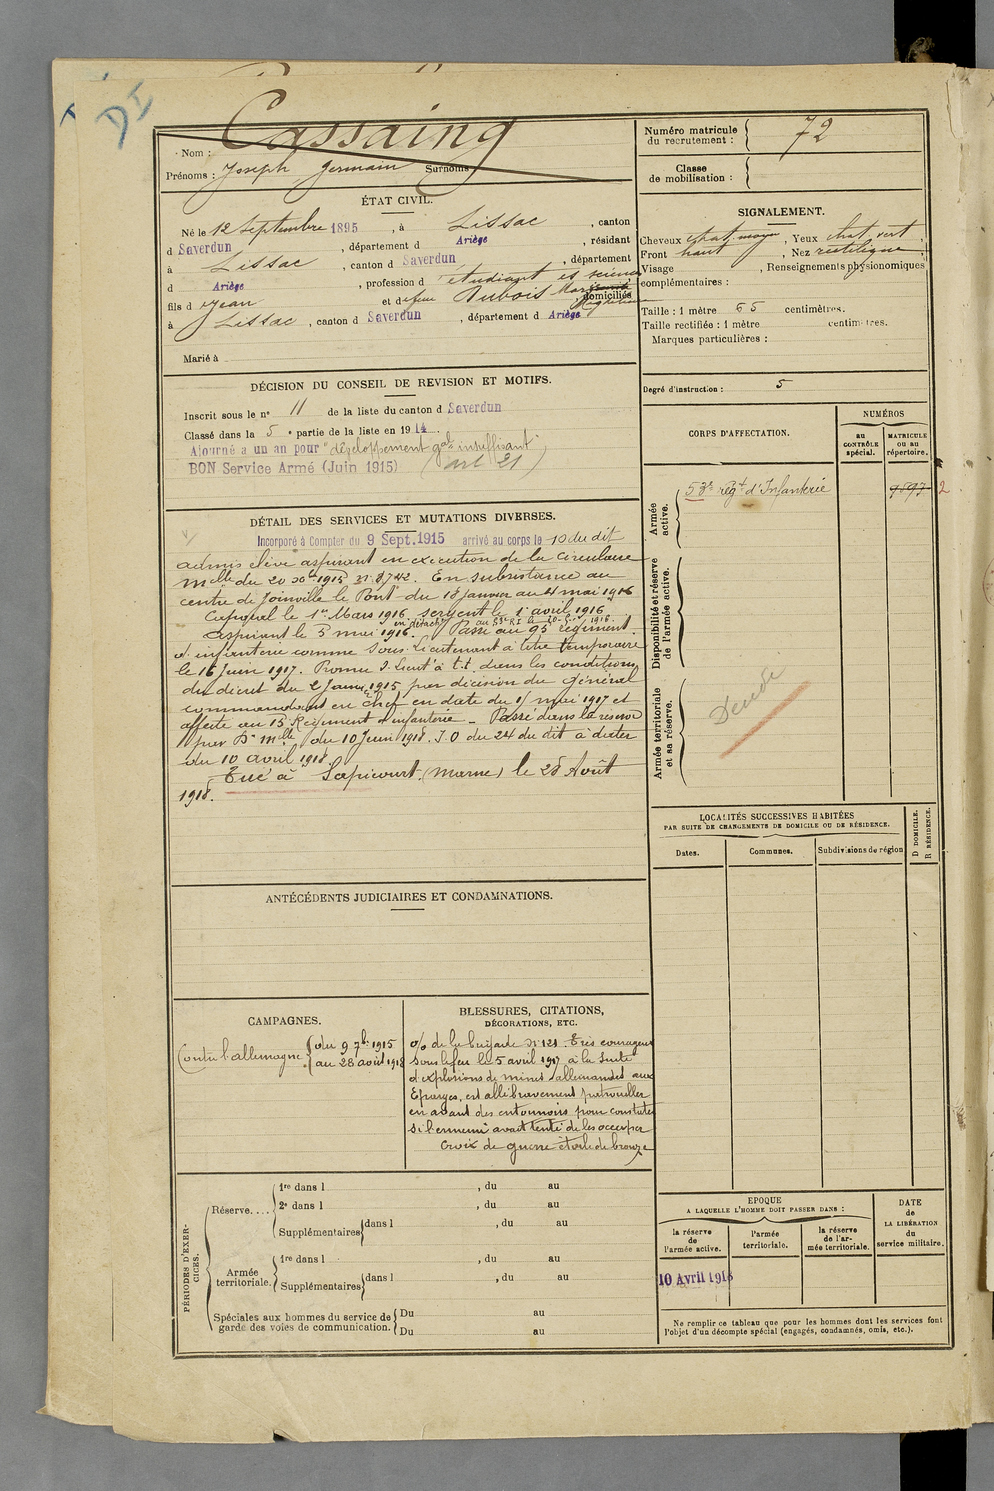 DI
Cassaing
Nom :
Prénoms : Joseph Germain Surnoms
Numéro matricule du recrutement : 72
Classe de mobilisation :
ÉTAT CIVIL.
Né le 12 Septembre 1895, à Lissac, canton
d Saverdun, département d Ariège, résidant
à Lissac, canton d Saverdun, département
d Ariège, profession d étudiant es sciences
fils d Jean et de feue Dubois domiciliés
à Lissac, canton d Saverdun, département d Ariège
Marié à
SIGNALEMENT.
Cheveux chat. moyen, Yeux chat. vert,
Front haut, Nez rectiligne,
Visage, Renseignements physionomiques
complémentaires :
Taille : 1 mètre 65 centimètres.
Taille rectifiée : 1 mètre centimètres.
Marques particulières :
Degré d'instruction : 5
DÉCISION DU CONSEIL DE REVISION ET MOTIFS.
Inscrit sous le n° 11 de la liste du canton d Saverdun
Classé dans la 5e partie de la liste en 1914.
Ajourné a un an pour "développement gal insuffisant"
BON Service Armé (Juin 1915) (art 21)
CORPS D'AFFECTATION.
NUMÉROS
au CONTRÔLE spécial.
MATRICULE ou au répertoire.
Armée active.
53e régt d'Infanterie
2
Disponibilité et réserve de l'armée active.
Armée territoriale et sa réserve.
Décédé
DÉTAIL DES SERVICES ET MUTATIONS DIVERSES.
Incorporé à Compter du 9 Sept. 1915 arrivé au corps le 10 du dit
admis élève aspirant en exécution de la circulaire
mlle du 20 Xbre 1915 n: 8742. En subsistance au
centre de Joinville le Pont du 18 Janvier au 4 mai 1916
Caporal le 1er Mars 1916 sergent le 1 avril 1916
aspirant le 5 mai 1916. Passé au 95 régiment
d'infanterie comme Sous-Lieutenant à titre temporaire
le 16 Juin 1917. Promu S. Lieut à t.t. dans les conditions
du décret du 2 Janv. 1915 par décision du Général
commandant en chef en date du 15 mai 1917 et
affecté au 15 Régiment d'infanterie - Passé dans la réserve
par Don mlle du 10 Juin 1918. J.O du 24 du dit à dater
du 10 avril 1918.
Tué à Sapicourt (Marne) le 28 Août
1918.
LOCALITÉS SUCCESSIVES HABITÉES
PAR SUITE DE CHANGEMENTS DE DOMICILE OU DE RÉSIDENCE.
Dates.
Communes.
Subdivisions de région
D DOMICILE.
R RÉSIDENCE.
ANTÉCÉDENTS JUDICIAIRES ET CONDAMNATIONS.
CAMPAGNES.
Contre l'allemagne
du 9 7bre 1915
au 28 août 1918
BLESSURES, CITATIONS,
DÉCORATIONS, ETC.
o/o de la brigade N: 121. Très courageux
sous le feu le 5 avril 1917 à la suite
d'explosions de mines allemandes aux
Eparges, est allé bravement patrouiller
en avant des entonnoirs pour constater
si l'ennemi avait tenté de les occuper
Croix de guerre étoile de bronze
PÉRIODES D'EXERCICES.
Réserve....
1re dans l, du au
2e dans l, du au
Supplémentaires dans l, du au
Armée territoriale.
1re dans l, du au
Supplémentaires dans l, du au
Spéciales aux hommes du service de garde des voies de communication.
Du au
Du au
EPOQUE
A LAQUELLE L'HOMME DOIT PASSER DANS :
la réserve de l'armée active.
l'armée territoriale.
la réserve de l'armée territoriale.
DATE de LA LIBÉRATION du service militaire.
10 Avril 1918
Ne remplir ce tableau que pour les hommes dont les services font
l'objet d'un décompte spécial (engagés, condamnés, omis, etc.).